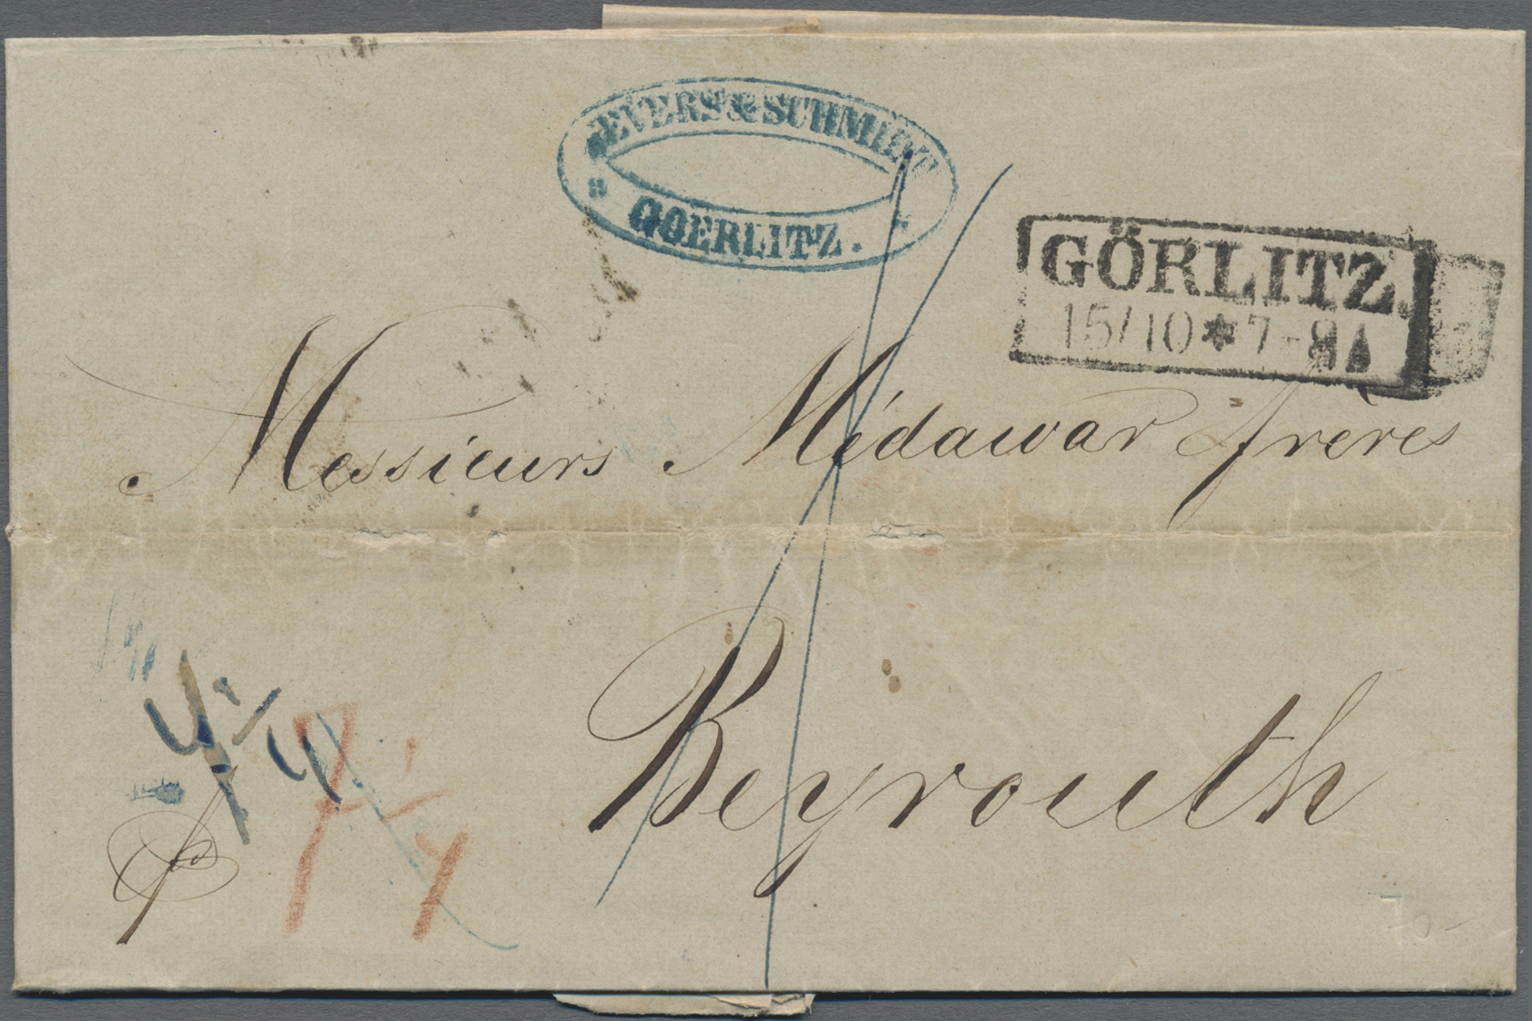 GEVERS & SCHMIDT
GOERLITZ.
GÖRLITZ.
15/10 * 7-8 A
Messieurs Médawar frères
Beyrouth
70-